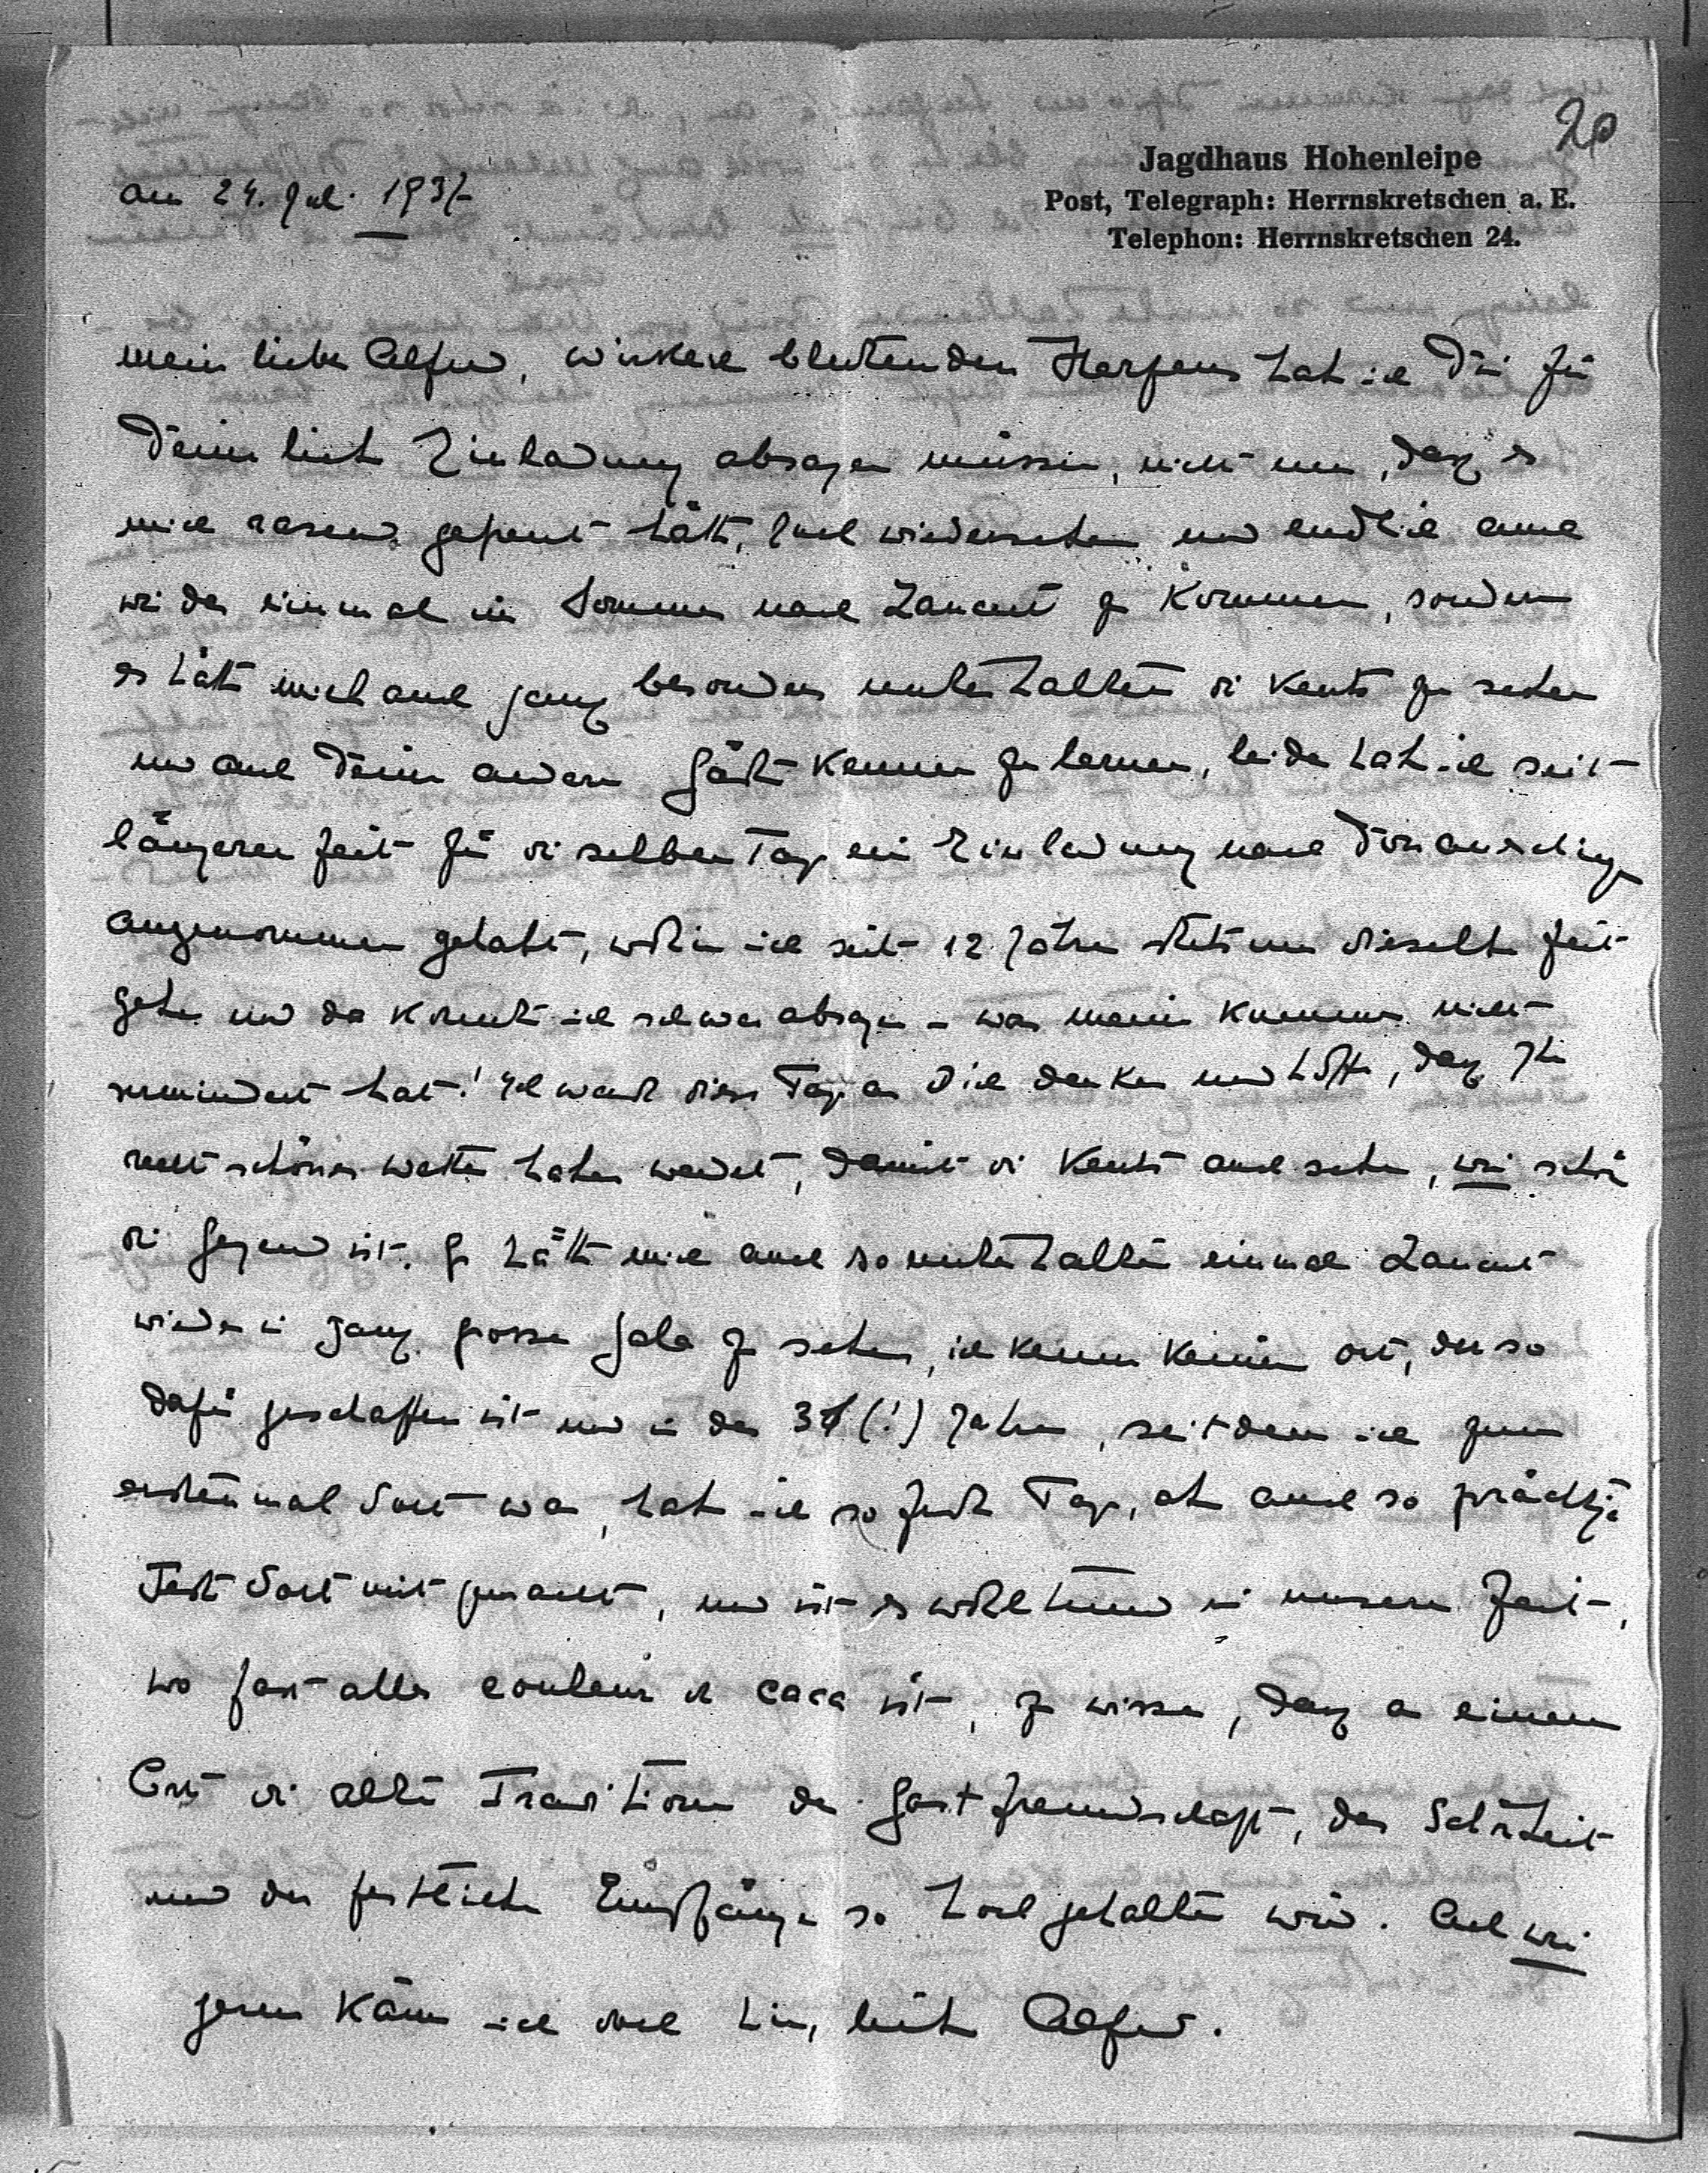 20
Jagdhaus Hohenleipe
Post, Telegraph: Herrnskretschen a. E.
Telephon: Herrnskretschen 24.
am 24. Juli 1937
mein lieber Alfred, wirklich blutenden Herzens habe ich Dir für
Deine liebe Einladung absagen müssen, nicht nur, dass es
mich rasend gefreut hätte, Euch wiedersehen und endlich auch
wieder einmal im Sommer nach Lancut zu kommen, sondern
es hätte mich auch ganz besonders unterhalten die Kents zu sehen
und auch Deine anderen Gäste kennen zu lernen, leider habe ich seit
längerer Zeit für dieselben Tage eine Einladung nach Donaueschingen
angenommen gehabt, wohin ich seit 12 Jahren stets um dieselbe Zeit
gehe und da konnte ich schwer absagen – was meinen Kummer nicht
vermindert hat! Ich werde diese Tage an Dich denken und hoffe, dass Ihr
recht schönes Wetter haben werdet, damit die Kents auch sehen, wie schön
die Gegend ist. Es hätte mich auch so unterhalten einmal Lancut
wieder in ganz grosser Gala zu sehen, ich kenne keinen Ort, der so
dafür geschaffen ist und in den (!) Jahren, seitdem ich zum
erstenmal dort war, habe ich so Tage, aber auch so prächtige
Feste dort mitgemacht, und ist es wohltuend in unserer Zeit,
wo fast alles couleur de caca ist, zu wissen, dass an einem
Ort die alte Tradition der Gastfreundschaft, der Schönheit
und der festlichen Empfänge so hoch gehalten wird. Ach wie
gerne käme ich doch hin, lieber Alfred.